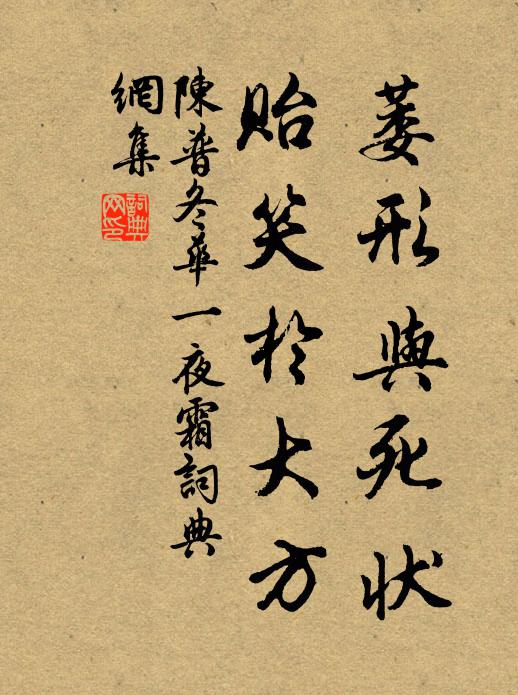 萎形與死状
貽笑於大方
陳普冬華一夜霜詞典
網集
詞典网印